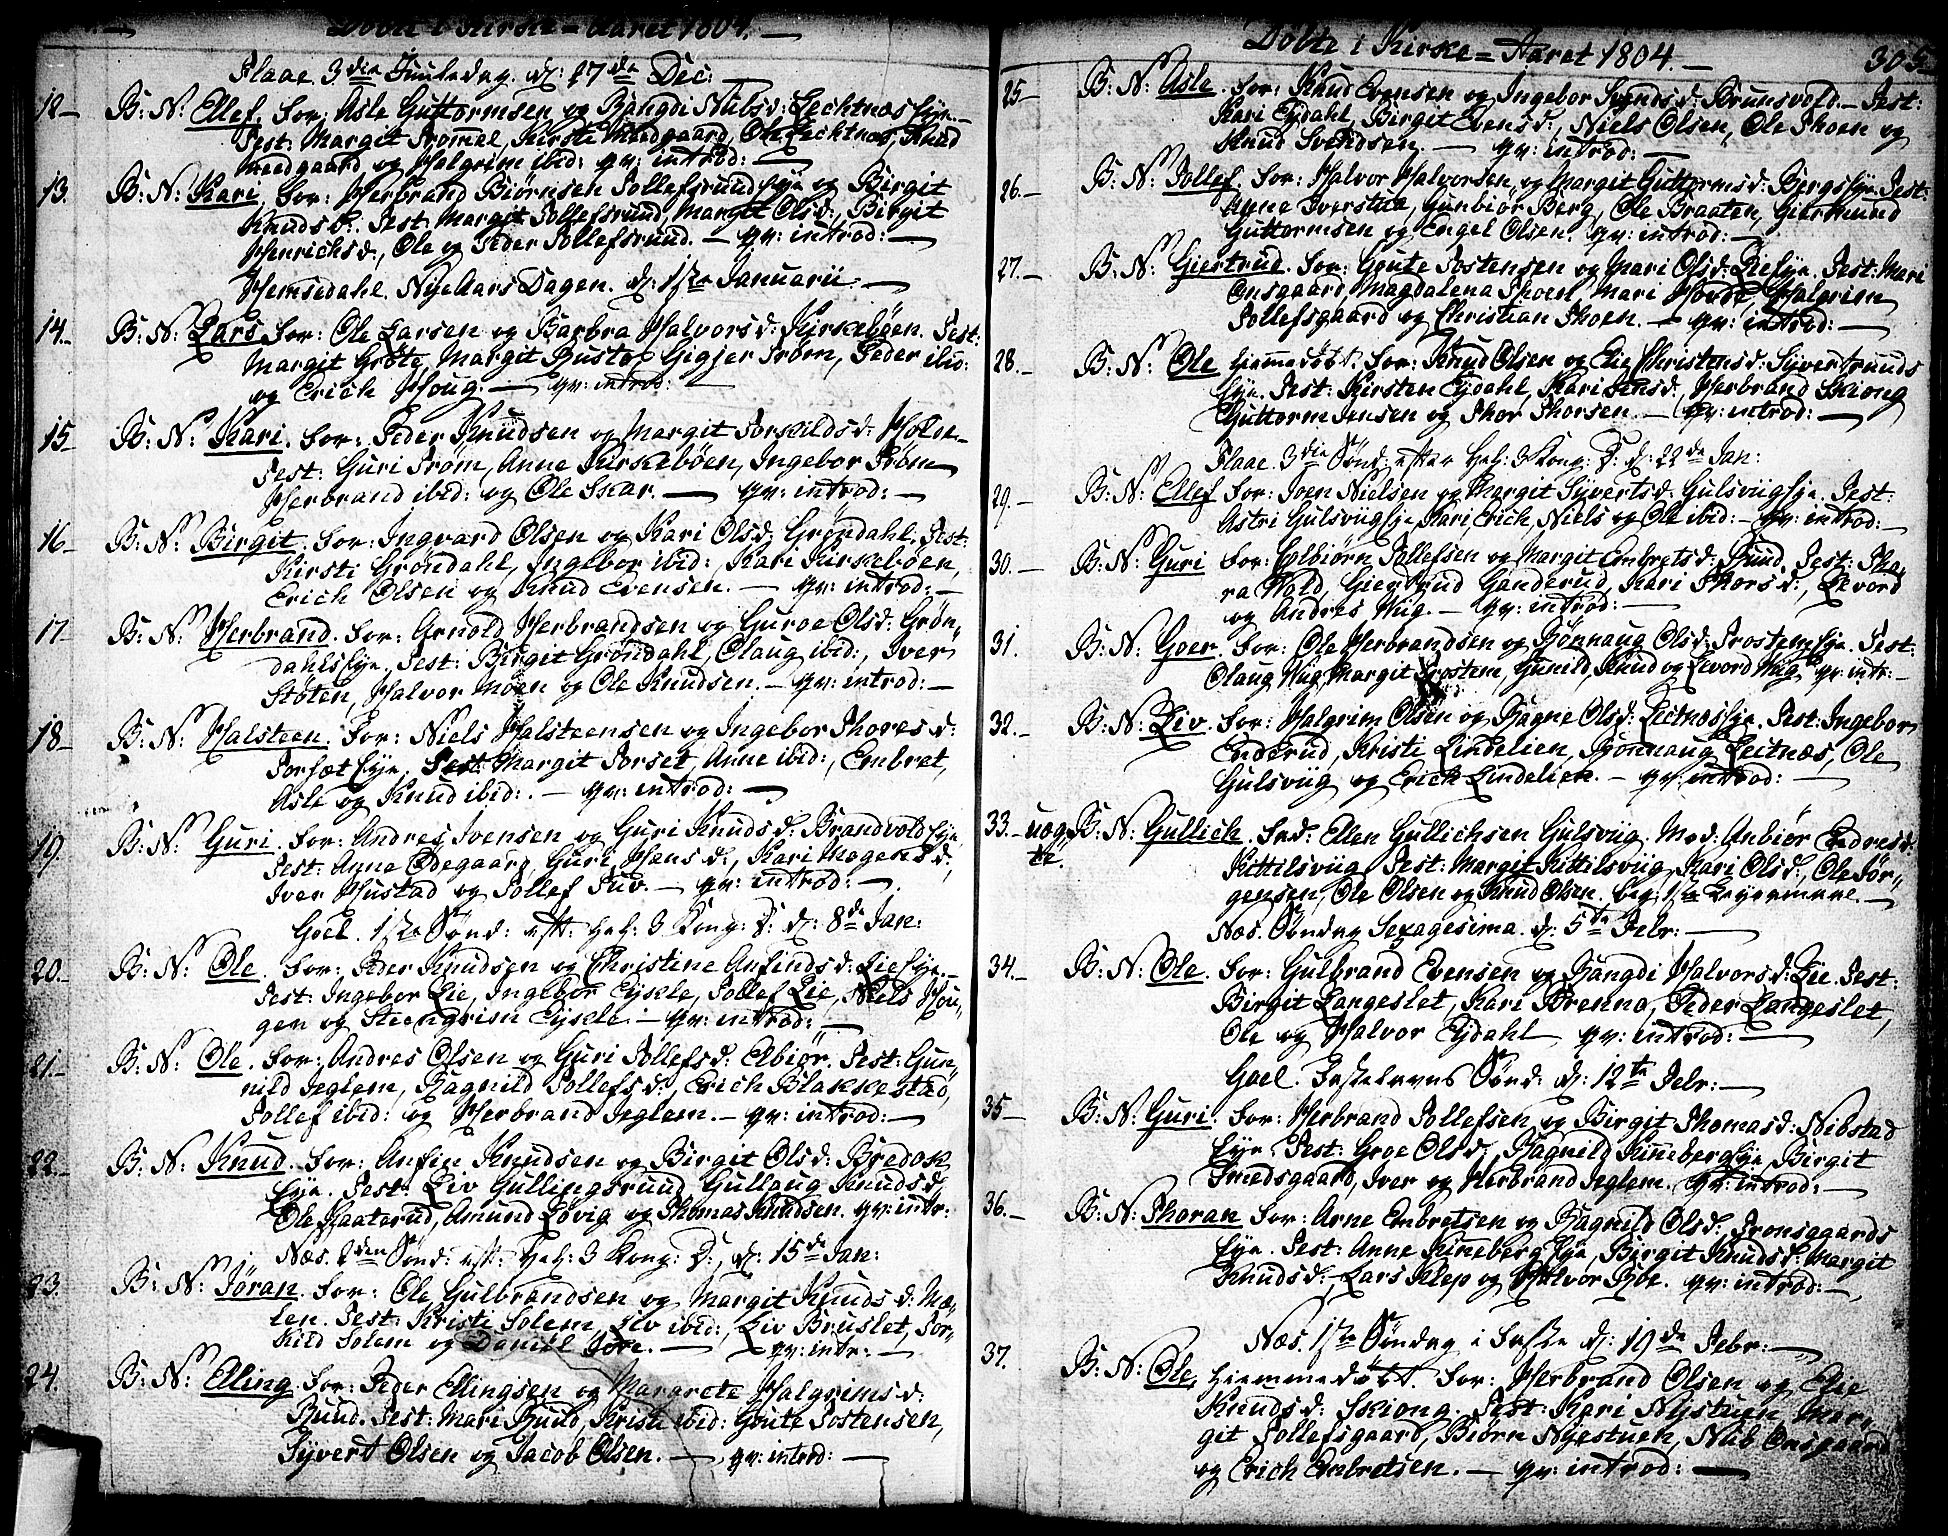 Døbte i Kirke-Aaret 1804.
Flaae. 3die Juuledag. d: 27de Dec:
12 B: N: Ellef. For: Asle Guttormsen og Bangdi Nubsd:
Test: Margit Trommal, Kirsti Meedgaard, Ole Knud
meedgaard og Halgrim ibid: qv: introd:
13. B: N: Kari. For: Herbrand Biørnsen Tollefsrund Eye og Birgit
Knudsd: Test: Margit Tollefsrund, Margit Olsd:, Birgit
Henrichsd:, Ole og Peder Tollefsrund. qv: introd:
Hemsedahl. NyeAarsDagen. d: 1ste Januarii
14. B: N: Lars For: Ole Larsen og Barbra Halvorsd: Kirkebøen. Test:
Margit Grøte, Margit Trøm, Peder ibid:
og Erich Houg. qv: introd:
15 B: N: Kari. For: Peder Knudsen og Margit Torkildsd: Holde
Test: Guri Trøm, Anne Kirkebøen, Ingebor Trøm
Herbrand ibid: og Ole Skar. qv: introd:
16 B: N: Birgit. For: Ingvard Olsen og Kari Olsd: Grøndahl. Test:
Kirsti Grøndahl, Ingebor ibid:, Kari Kirkebøen,
Erich Olsen og Knud Evensen. qv: introd:
17 B: N: Herbrand. For: Arnold Herbrandsen og Guroe Olsd: Grøn-
dahlsEye. Test: Birgit Grøndahl, Olaug ibid:, Iver
Støten, Halvor Moen og Ole Knudsen. qv: introd:
18 B: N: Halsteen. For: Niels Halsteensen og Ingebor Thoresd:
Torsæt Eye. Test: Margit Torset, Anne ibid:, Embret,
Asle og Knud ibid: qv: introd:
19. B: N: Guri. For: Andres Ivensen og Guri Knudsd: Brandvold Eye
Test: Anne Ødegaard, Guri Hansd:, Kari Mogensd:,
Iver Hustad og Tollef Tuv. qv: introd:
Goel. 1ste Sønd: eft: Hel: 3 Kong: D: d: 8de Jan:
20. B: N: Ole. For: Peder Knudsen og Christine Anfindsd: Lie Eye.
Test: Ingebor Lie, Ingebor Eykle, Tollef Lie, Niels Hou-
gen og Steengrim Eykle. qv: introd:
21. B: N: Ole. For: Andres Olsen og Guri Tollefsd: Elbiør. Test: Gun-
nild Jeglem, Bagnild Tollefsd:, Erich Blakkestad,
Tollef ibid: og Herbrand Jeglem. qv: introd:
22. B: N: Knud. For: Anfin Knudsen og Birgit Olsd: Bredok
Eye. Test: Liv Gullingsrund, Gullaug Knudsd:
Ole, Amund Løvig og Thomas Knudsen. qv: intr:
Næs. 2den Sønd: eft: Hel: 3 Kong: D: d: 15de Jan:
23. B: N: Jøran. For: Ole Gulbrandsen og Margit Knudsd: Mæ-
len. Test: Kristi Solem, Liv ibid:, Liv Bruslet, Tor-
kild Solem og Daniel qv: intr:
24. B: N: Elling For: Peder Ellingsen og Mararete Halgrimsd:
Ruud. Test: Mari Ruud, Kristi ibid: Goute Tostensen,
Syvert Olsen og Jacob Olsen. qv: introd:
Døbte i Kirke-Aaret 1804. 305
25 B: N: Asle. For: Knud Evensen og Ingebor Svendsd: Brunsvold. Test:
Kari Eydahl, Birgit Evensd:, Niels Olsen, Ole Skoen og
Knud Svendsen. qv: introd:
26. B: N: Tollef. For: Halvor Halvorsen og Margit Guttormsd: Bergs Eye. Test:
Anne Iverstue, Gunbior Berg, Ole Braaten, Giermund
Guttormsen og Engel Olsen. qv: introd:
27. B: N: Giertrud. For: Goute Tostensen og Mari Olsd: Lie Eye. Test: Mari
Onsgaard, Magdalena Skoen, Mari Horde, Halgrim
Tollefsgaard og Christian Skoen. qv: introd:
28. B: N: Ole hiemmedøbt. For: Knud Olsen og Elie Christensd: Syvertruds
Eye. Test: Kirsten Eydahl, Kari Jensd:, Herbrand Skiong
Guttorm Jensen og Thor Thorsen. qv: introd:
Flaae. 3die Sønd: efter Hel: 3 Kong: D: d: 22de Jan:
29. B: N: Ellef For: Joen Nielsen og Margit Syvertsd: Gulsviig Eye. Test:
Astri Gulsviig Eye, Kari, Erich, Niels og Ole ibid: qv: introd:
30. B: N: Guri For: Colbiørn Tollefsen og Margit Embretsd: Ruud. Test: Tho-
ra Wold, Giertrud Ganderud, Kari Thorsd:, Levord
og Andres Wiig. qv: introd:
31. B: N: Goer. For: Ole Herbrandsen og Rønnaug Olsd: Trostem Eye. Test:
Olaug Wiig, Margit Trostem, Gunild, Knud og Levord Wiig qv: intr:
32. B: N: Liv. For: Halgrim Olsen og Bagne Olsd: Leitnæs Eye. Test: Ingebor
Enderud, Kristi Lindelien, Rønnaug Leitnæs, Ole
Gulsviig og Erich Lindelien. qv: introd:
33. uæg-
te B: N: Gullich. Fad: Ellen Gullichsen Gulsviig. Mod: Anbiør Endresd:
Kittilsviig. Test: Margit Kittilsviig, Kari Olsd:, Ole Jør-
gensen, Ole Olsen og Knud Olsen. beg: 1ste Leyermaal.
Næs. Søndag Sexagesima. d: 5te Febr:
34. B: N: Ole. For: Gulbrand Evensen og Bangdi Halvorsd: Lie. Test:
Birgit Langeslet, Kari Brenna, Peder Langeslet,
Ole og Halvor Eydahl qv: introd:
Goel. Fastelavns Sønd: d: 12te Febr:
35 B: N: Guri. For: Herbrand Tollefsen og Birgit Thomasd: Nibstad
Eye. Test: Groe Olsd:, Bagnild Kinneberg Eye, Birgit
Smedsgaard, Iver og Herbrand Jeglem. qv: introd:
36. B: N: Thoran For: Arne Embretsen og Bagnild Olsd: Tronsgaards
Eye. Test: Anne Kinneberg Eye, Birgit Knudsd: Margit
Knudsd:, Lars Klep og Halvor qv: introd:
Næs. 1ste Søndag i Faste d: 19de Febr:
37. B: N: Ole, hiemmedøbt. For: Herbrand Olsen og Elie
Knudsd: Skiong. Test: Kari Nystuen, Mar-
git Tollefsgaard, Biørn Nyestuen, Nub Onsgaard
og Erich Embretsen. qv: introd: